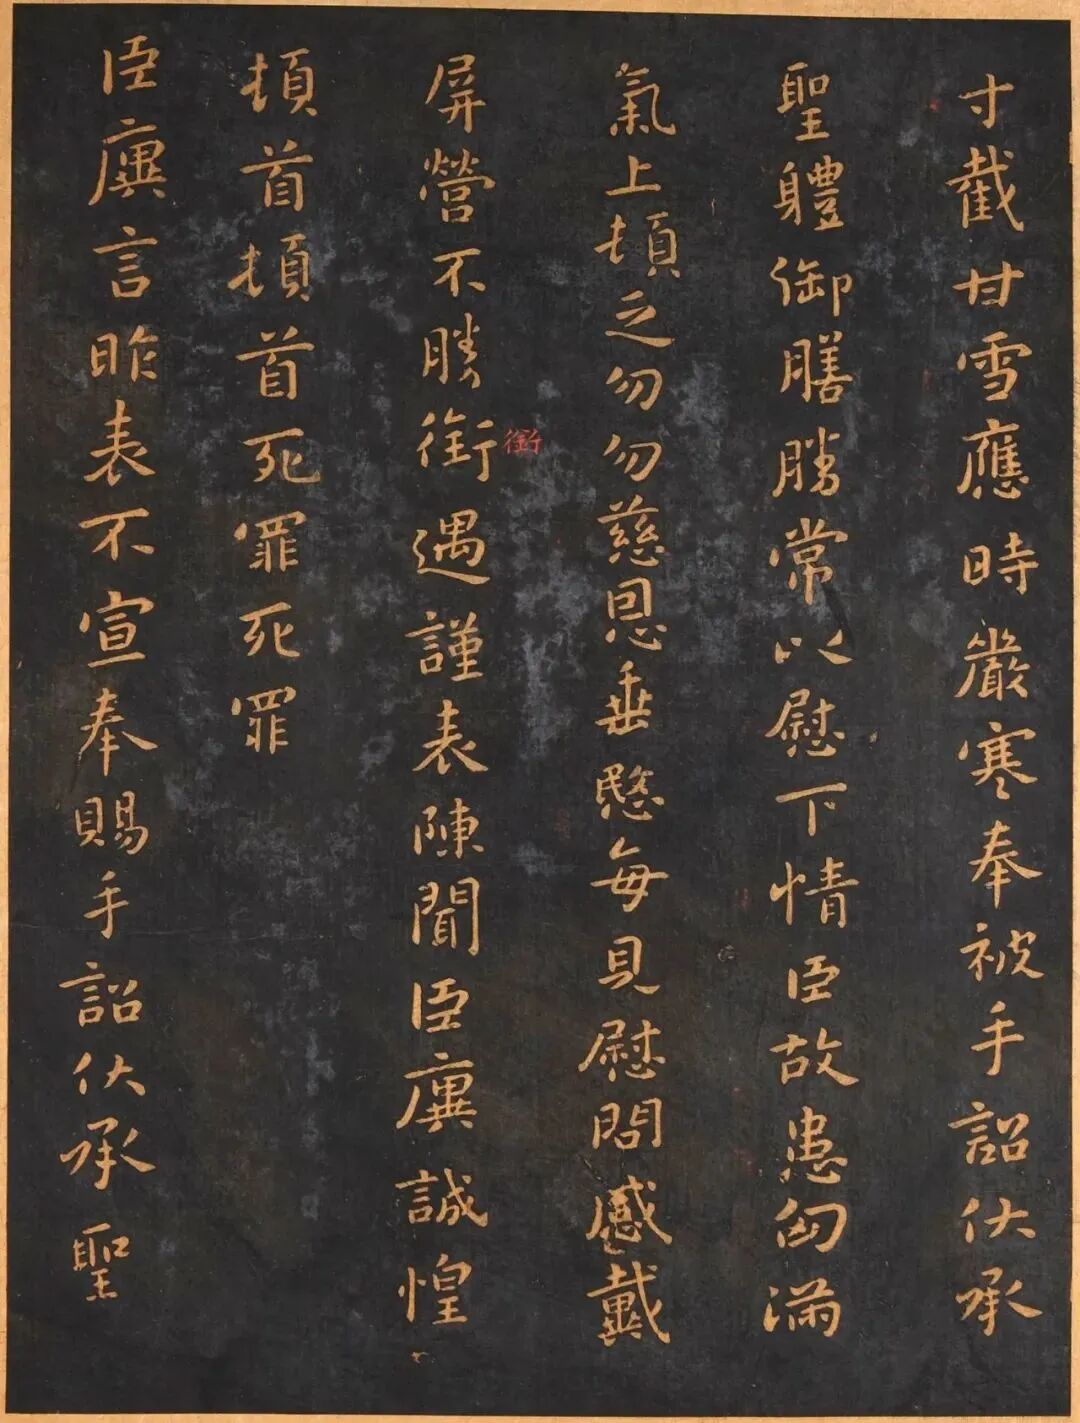 寸截甘雪應時嚴寒奉被手詔伏承
聖體御膳勝常以慰下情臣故患匈滿
氣上頓乏勿勿慈恩垂愍每見慰問感戴
屏營不勝銜遇謹表陳聞臣廙誠惶
銜
頓首頓首死罪死罪
臣廙言昨表不宣奉賜手詔伏承聖